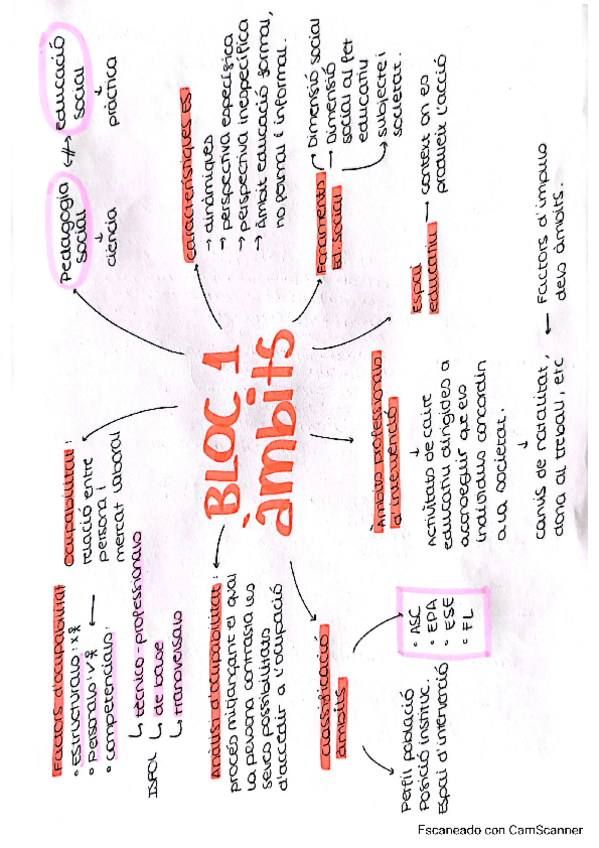 BLOC 1
àmbits
Pedagogia
social
ciència
educació
social
pràctica
característiques ES:
→ dinàmiques
→ perspectiva específica
→ perspectiva inespecífica
→ Àmbit educació formal,
no formal i informal.
Fonaments
Ed. Social
Dimensió social
→ Dimensió
social al fet
educatiu
subjecte i
societat.
Espai
educatiu
→ context on es
produeix l'acció
Àmbits professionals
d'intervenció
Activitats de caire
educatiu dirigides a
aconseguir que els
individus concordin
a la societat.
canvis de natalitat,
dona al treball, etc
← Factors d'impuls
dels àmbits.
classificació
àmbits
• ASC
• EPA
• ESE
• FL
Perfil població
Posició instituc.
Espai d'intervenció
Anàlisi d'ocupabilitat:
procés mitjançant el qual
la persona contrasta les
seves possibilitats
d'accedir a l'ocupació
Ocupabilitat:
relació entre
persona i
mercat laboral
Factors d'ocupabilitat
• Estructurals:
• Personals:
• competencials:
ISFOL
↳ tècnico-professionals
↳ de base
↳ transversals
Escaneado con CamScanner